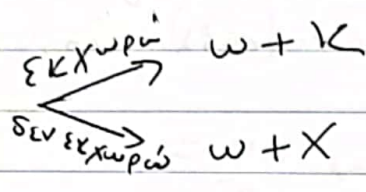 εκχωρώ ω + κ
δεν εκχωρώ ω + χ